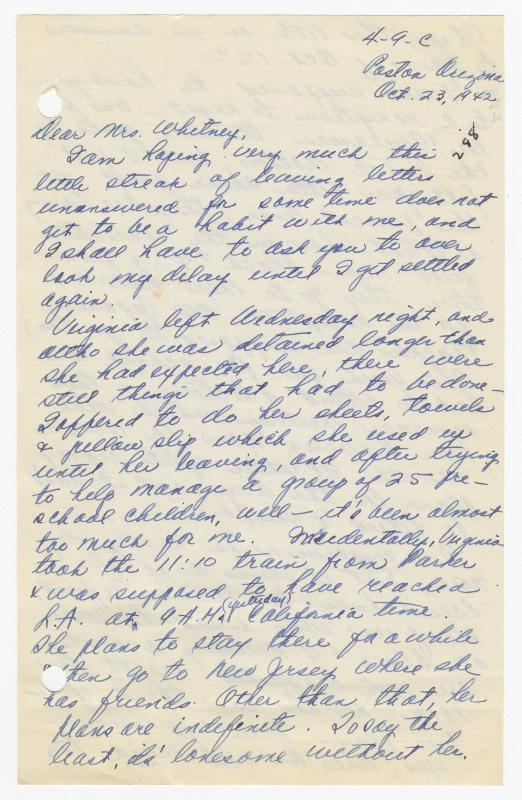 4-9-C
Poston Arizona
Oct. 23, 1942
298
Dear Mrs. Whitney,
I am hoping very much this
little streak of leaving letters
unanswered for some time does not
get to be a habit with me, and
I shall have to ask you to over
look my delay until I get settled
again.
Virginia left Wednesday night, and
altho she was detained longer than
she had expected here, there were
still things that had to be done –
I offered to do her sheets, towels
& pillow slip which she used up
until her leaving, and after trying
to help manage a group of 25 pre-
school children, well – it's been almost
too much for me. Incidentally, Virginia
took the 11:10 train from Parker
& was supposed to have reached
L.A. at 9 A.M. (yesterday) California time.
She plans to stay there for a while
then go to New Jrsey where she
has friends. Other than that, her
plans are indefinite. To say the
least, it's lonesome without her.